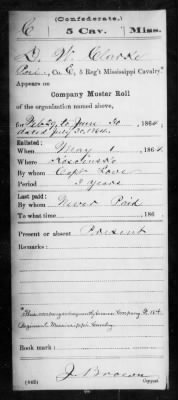 (Confederate.)
C 5 Cav. Miss.
D. W. Clarke
Co. E, 5 Reg't Mississippi Cavalry.*
Appears on
Company Muster Roll
of the organization named above,
for Feb 29 to June 30, 1864.
dated July 30, 1864.
Enlisted:
When May 1, 1864
Where Kosciusko
By whom Capt Love
Period 3 years
Last paid:
By whom Never Paid
To what time , 186 .
Present or absent Present
Remarks:
*This company subsequently became Company
Regiment Mississippi Cavalry.
Book mark:
J. Brown
(642) Copyist.